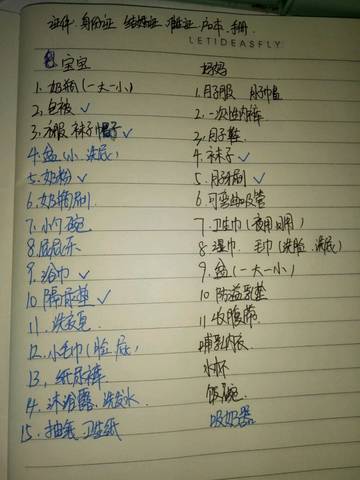 证件 身份证 结婚证 准生证 户本 手册
LETIDEASFLY.
宝宝
1. 奶瓶(一大一小)
2. 包被 ✓
3. 衣服 袜子 帽子 ✓
4. 盆(小 洗屁)
5. 奶粉 ✓
6. 奶瓶刷
7. 小门碗
8. 屁屁乐
9. 浴巾 ✓
10 隔尿垫 ✓
11. 洗衣皂
12. 小毛巾(脸 屁)
13. 纸尿裤
14. 沐浴露 洗发水
15. 抽纸 卫生纸
妈妈
1. 月子服 月子巾
2. 一次性内裤
3. 月子鞋
4. 袜子 ✓
5. 月牙刷 ✓
6. 可弯曲吸管
7. 卫生巾(夜用 日用)
8. 湿巾. 毛巾(洗脸. 洗屁)
9. 盆(一大一小)
10 防溢乳垫
11 收腹带
哺乳内衣
水杯
饭碗
吸奶器